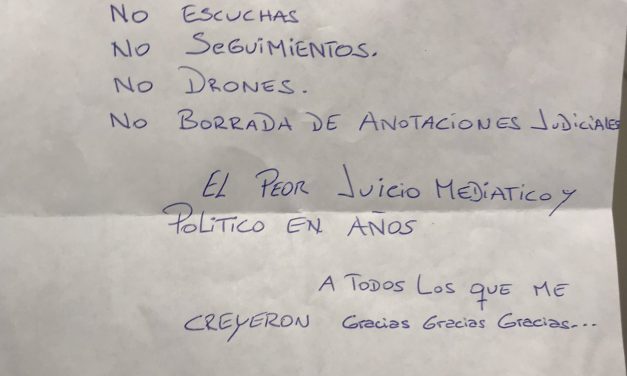 No ESCUCHAS
No SEGUiMiENTOS.
No DRONES.
No BORRADA DE ANOTACiONES JUDiCiALES
EL PEOR JUiCiO MEDiATiCO y
POLiTiCO EN AÑOS
A TODOS LOS QUE ME
CREyERON Gracias Gracias Gracias...